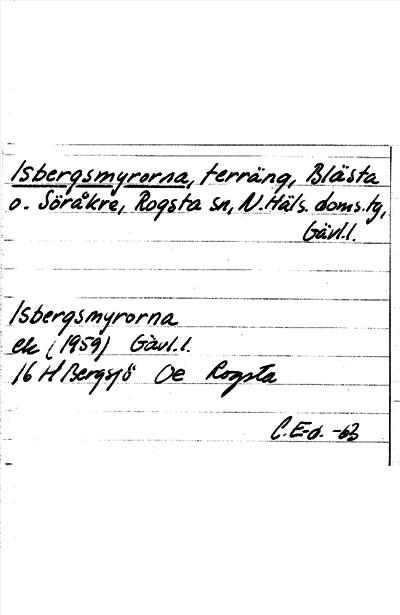 Isbergsmyrorna, terräng, Blästa
o. Söråkre, Rogsta sn, N. Häls. doms.tg,
Gävl.l.
Isbergsmyrorna
ek (1959) Gävl.l.
16 H Bergsjö Oe Rogsta
C.E-d. -63